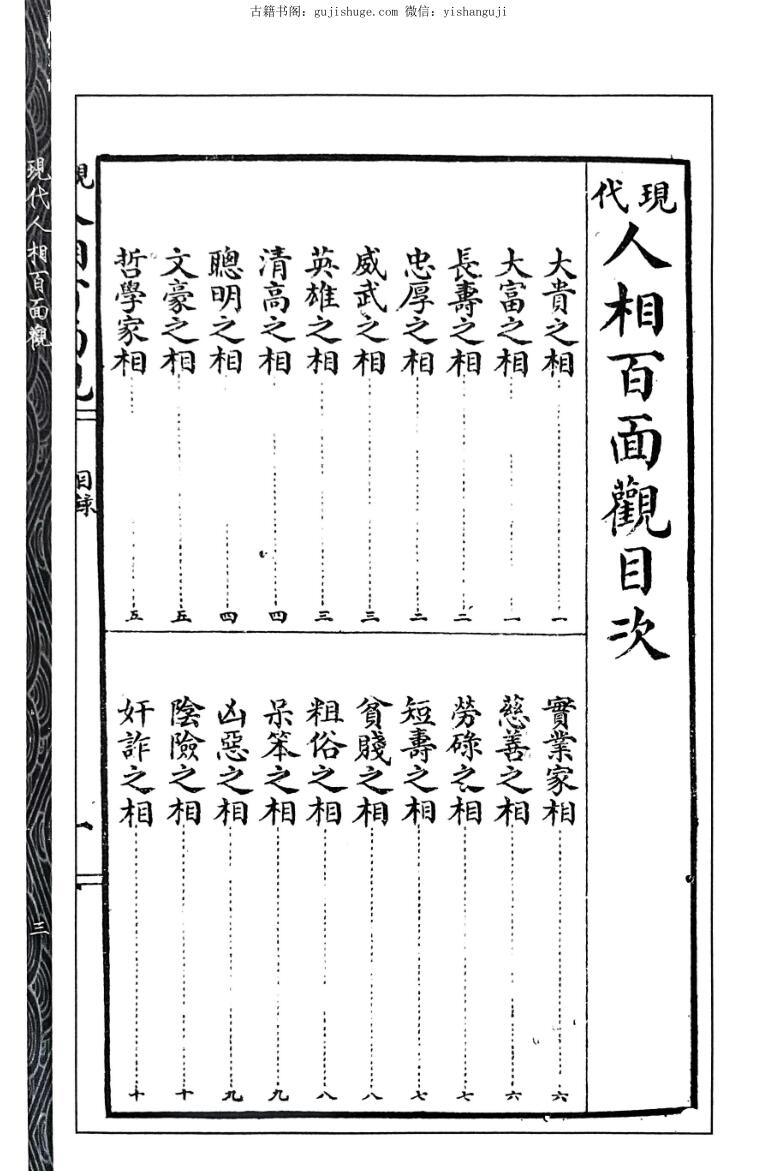 古籍书阁：gujishuge.com 微信：yishanguji
現代人相百面觀目次
大貴之相 一
大富之相 一
長壽之相 二
忠厚之相 二
威武之相 三
英雄之相 三
清高之相 四
聰明之相 四
文豪之相 五
哲學家相 五
實業家相 六
慈善之相 六
勞碌之相 七
短壽之相 七
貧賤之相 八
粗俗之相 八
呆笨之相 九
凶惡之相 九
陰險之相 十
奸詐之相 十
目錄
一
現代人相百面觀
三